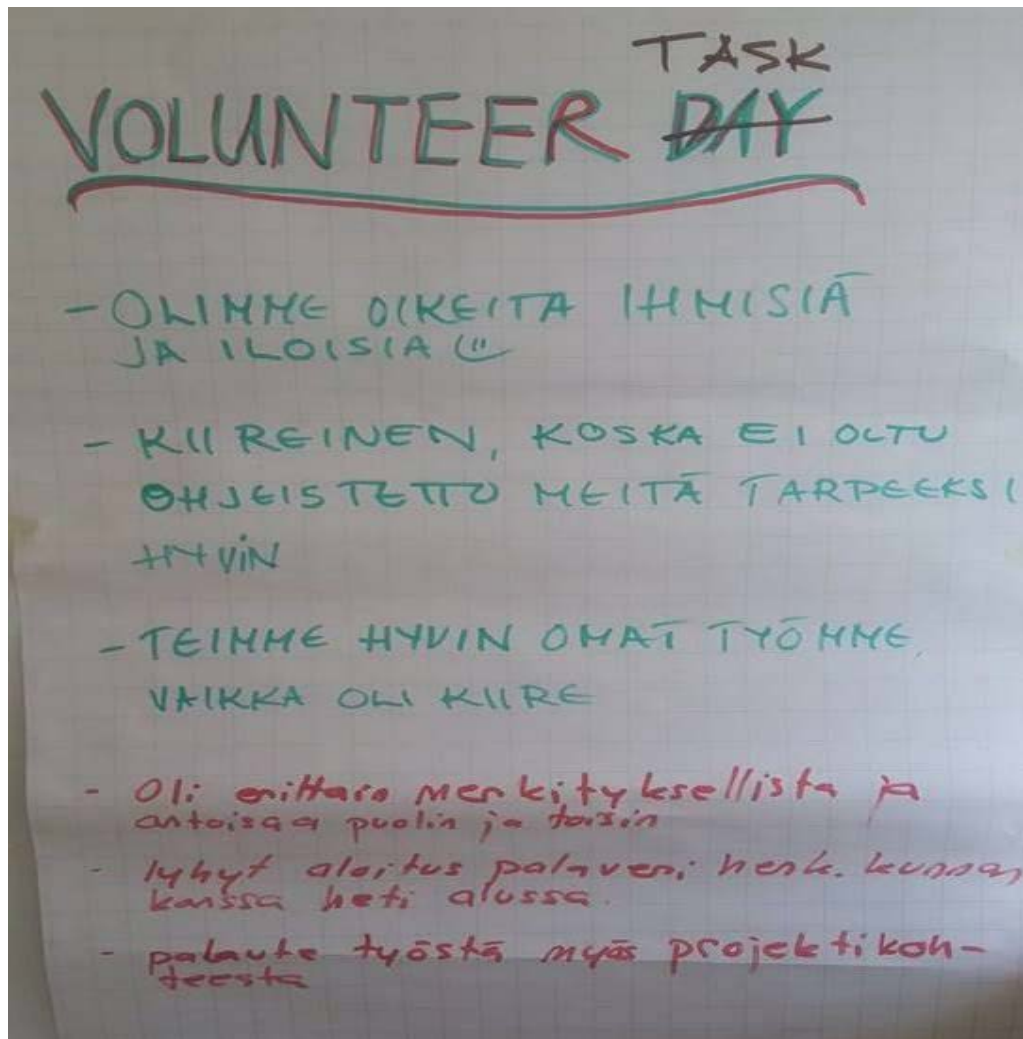 TASK
VOLUNTEER DAY
- OLIMME OIKEITA IHMISIÄ
JA ILOISIA
- KIIREINEN, KOSKA EI OLTU
OHJEISTETTU MEITÄ TARPEEKSI
HYVIN
- TEIMME HYVIN OMAT TYÖMME,
VAIKKA OLI KIIRE
- Oli erittäin merkityksellistä ja
antoisaa puolin ja toisin
- lyhyt aloitus palaveri henk. kunnan
kanssa heti alussa.
- palaute työstä myös projektikoh-
teesta